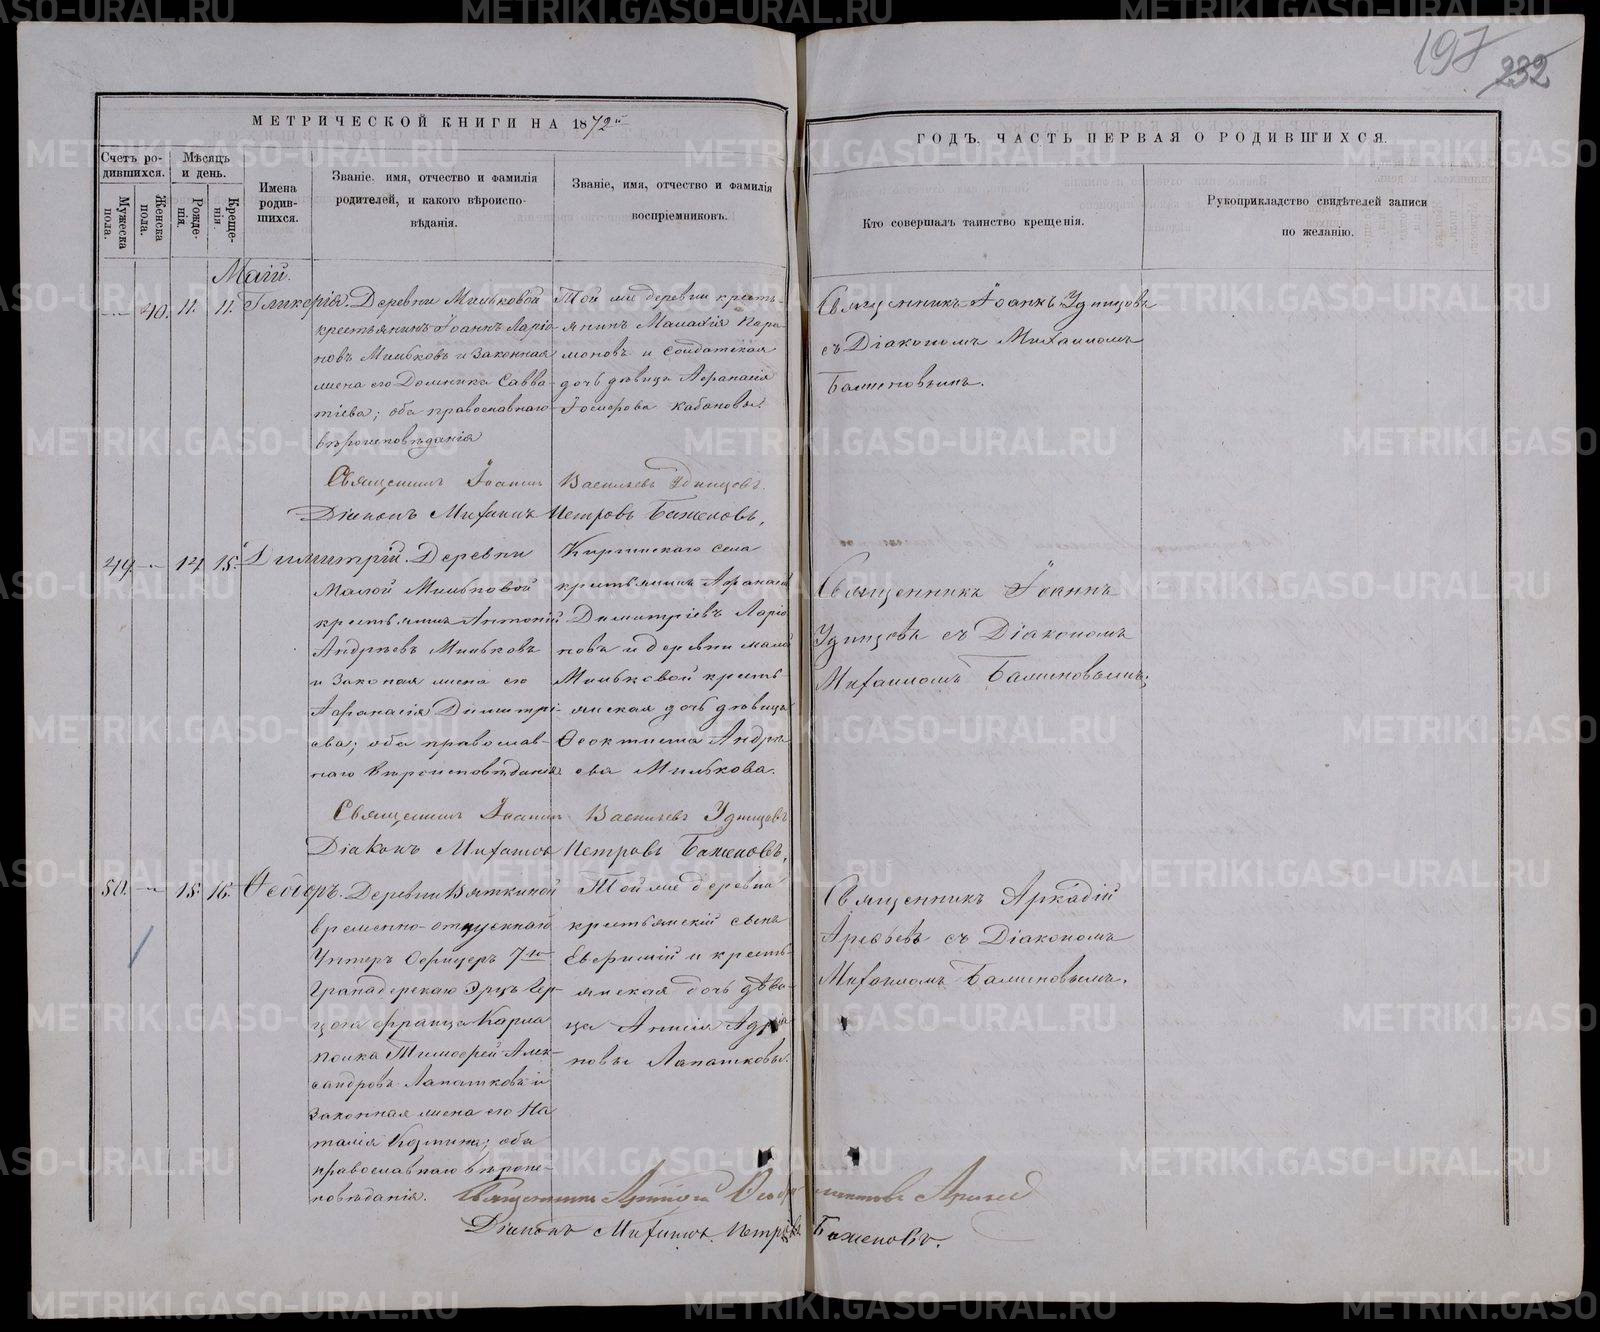 197
232
МЕТРИЧЕСКОЙ КНИГИ НА 1872й
Счетъ родившихся.
Мужеска пола.
Женска пола.
Мѣсяцъ и день.
Рожденія.
Крещенія.
Имена родившихся.
Званіе, имя, отчество и фамилія родителей, и какого вѣроисповѣданія.
Званіе, имя, отчество и фамилія воспріемниковъ.
ГОДЪ, ЧАСТЬ ПЕРВАЯ О РОДИВШИХСЯ.
Кто совершалъ таинство крещенія.
Рукоприкладство свидѣтелей записи по желанію.
Маій.
40. 11. 11. Гликерія.
Деревни Мильковой
крестьянинъ Іоаннъ Ларіо-
новъ Мильковъ и законная
жена его Домника Савва-
тіева; оба православнаго
вѣроисповѣданія
Той же деревни кресть-
янинъ Малахія Пара-
моновъ и солдатская
дочь дѣвица Афанасія
Кабановы.
Священникъ Іоаннъ Удинцовъ
съ Діакономъ Михаиломъ
Баженовымъ.
Священникъ Іоаннъ Васильевъ Удинцовъ.
Діаконъ Михаилъ Петровъ Баженовъ,
49 14 15. Димитрій.
Деревни
Малой Мильковой
крестьянинъ Антоній
Андреевъ Мильковъ
и законая жена его
Афанасія Димитрі-
ева; оба православ-
наго вѣроисповѣданія.
Киргинскаго села
крестьянинъ Афанасій
Димитріевъ Ларіо
новъ и деревни малой
Мильковой кресть-
янская дочь дѣвица
Ѳеоктиста Андре
ева Милькова.
Священникъ Іоаннъ
Удинцовъ съ Діакономъ
Михаиломъ Баженовымъ;
Священникъ Іоаннъ Васильевъ Удинцовъ
Діаконъ Михаилъ Петровъ Баженовъ,
50. 15. 16. Ѳеодоръ.
Деревни Вяткиной
временно-отпускной
Унтеръ Офицеръ 7го
Гранадерскаго Эрцъ Гер-
цога Франца Карла
полка Тимофей Алек-
сандровъ Лапатковъ и
законная жена его На
талія Козмина; оба
православнаго вѣроис-
повѣданія.
Той же деревни
крестьянскій сынъ
Евфимій и кресть-
янская дочь дѣви-
ца Анисія Адріа
новы Лапатковы.
Священникъ Аркадій
Арефьевъ съ Діакономъ
Михаиломъ Баженовымъ.
Священникъ
Діаконъ Михаилъ Петровъ Баженовъ.
METRIKI.GASO-URAL.RU